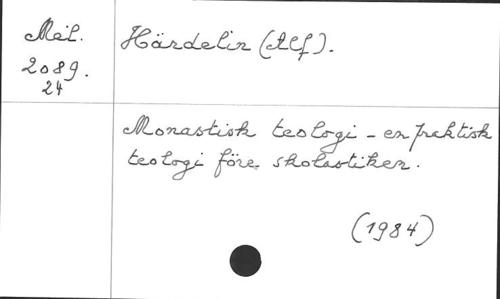 Mél.
2089.
24
Härdelin (Alf).
Monastisk teologi - en praktisk
teologi före skolastiken.
(1984)